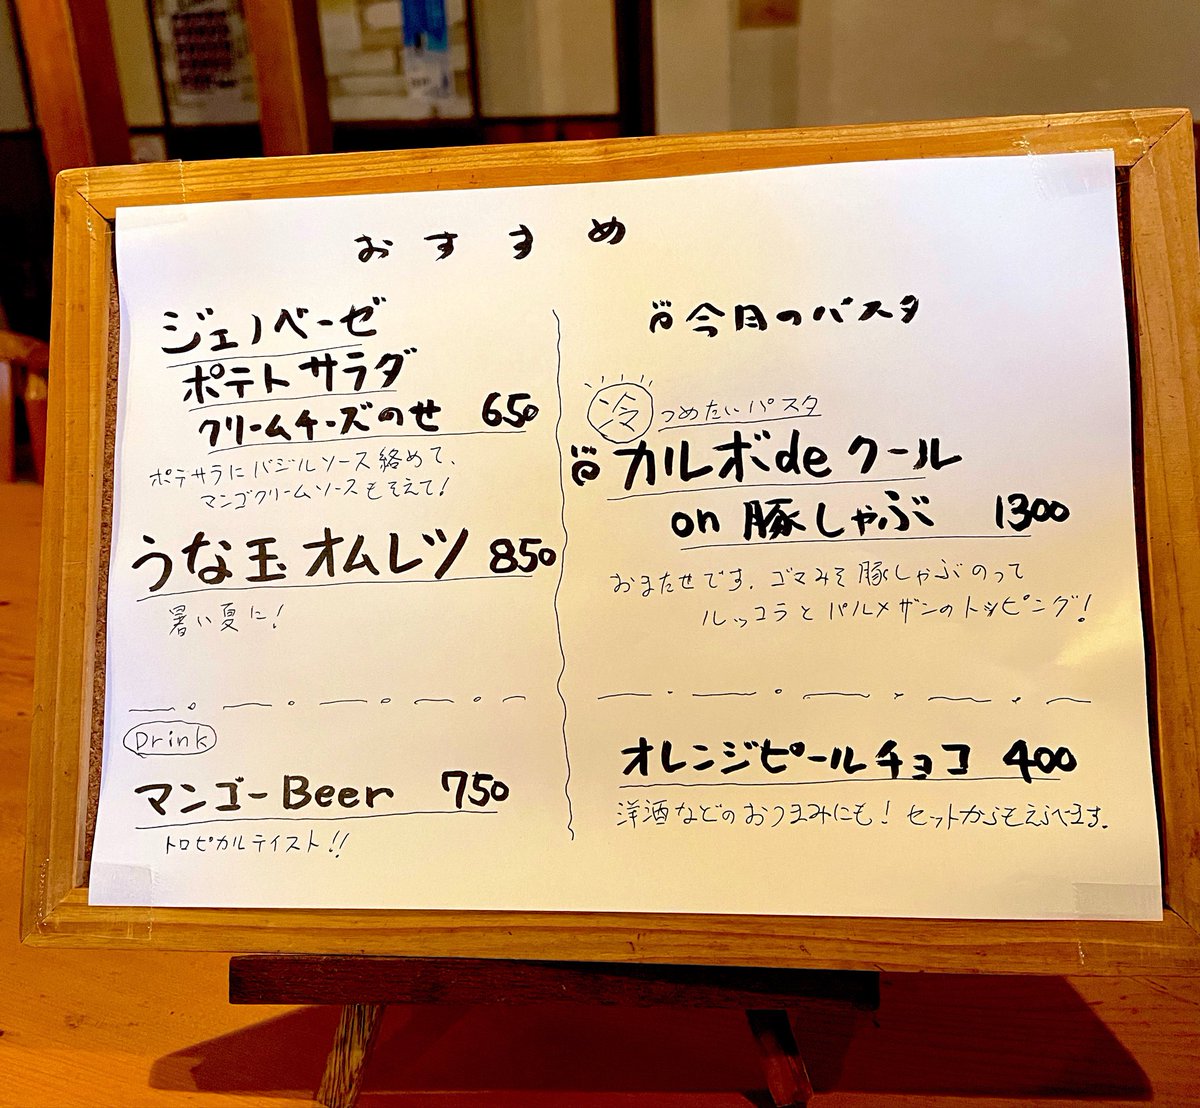 おすすめ
ジェノベーゼ
ポテトサラダ
クリームチーズのせ 650
ポテサラにバジルソース絡めて、
マンゴクリームソースもそえて!
うな玉オムレツ 850
暑い夏に!
Drink
マンゴーBeer 750
トロピカルテイスト!!
今月のパスタ
冷 つめたいパスタ
カルボdeクール
on 豚しゃぶ 1300
おまたせです。ゴマみそ豚しゃぶのって
ルッコラとパルメザンのトッピング!
オレンジピールチョコ 400
洋酒などのおつまみにも! セットからもえらべます。